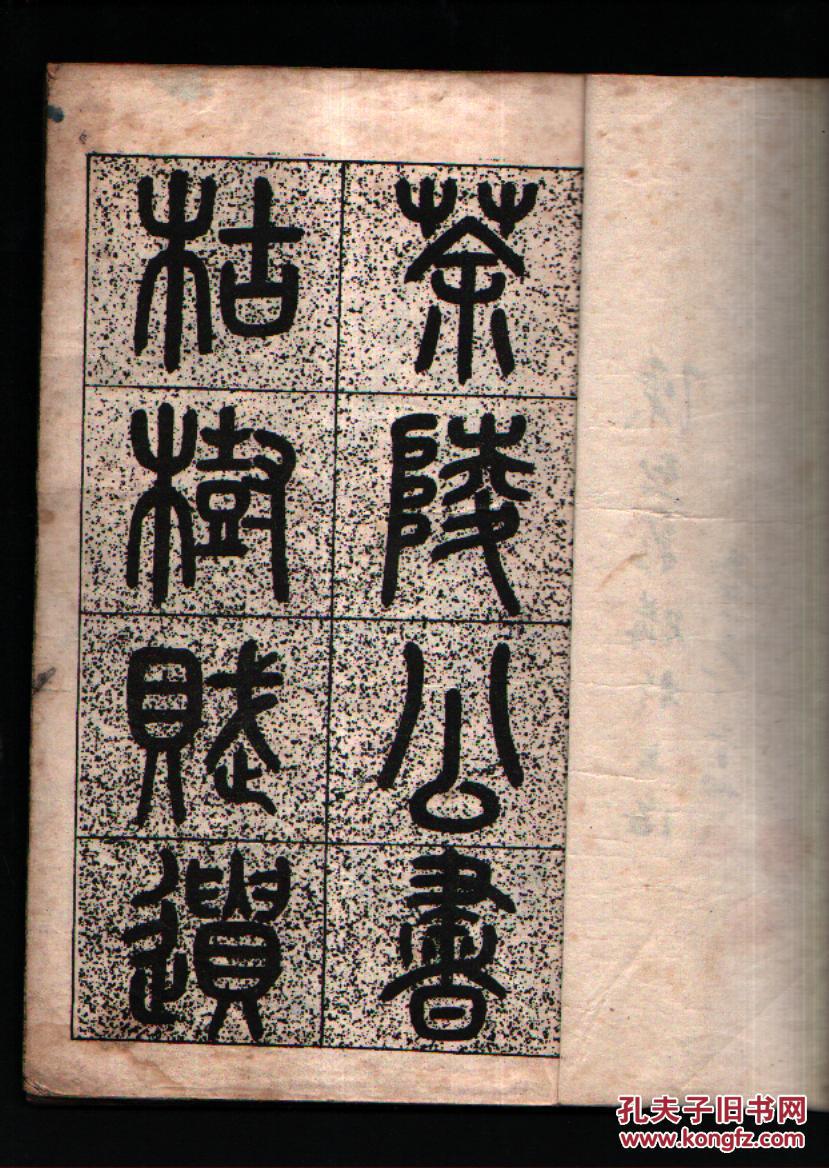 茶陵公書
枯樹賦遺
孔夫子旧书网
www.kongfz.com